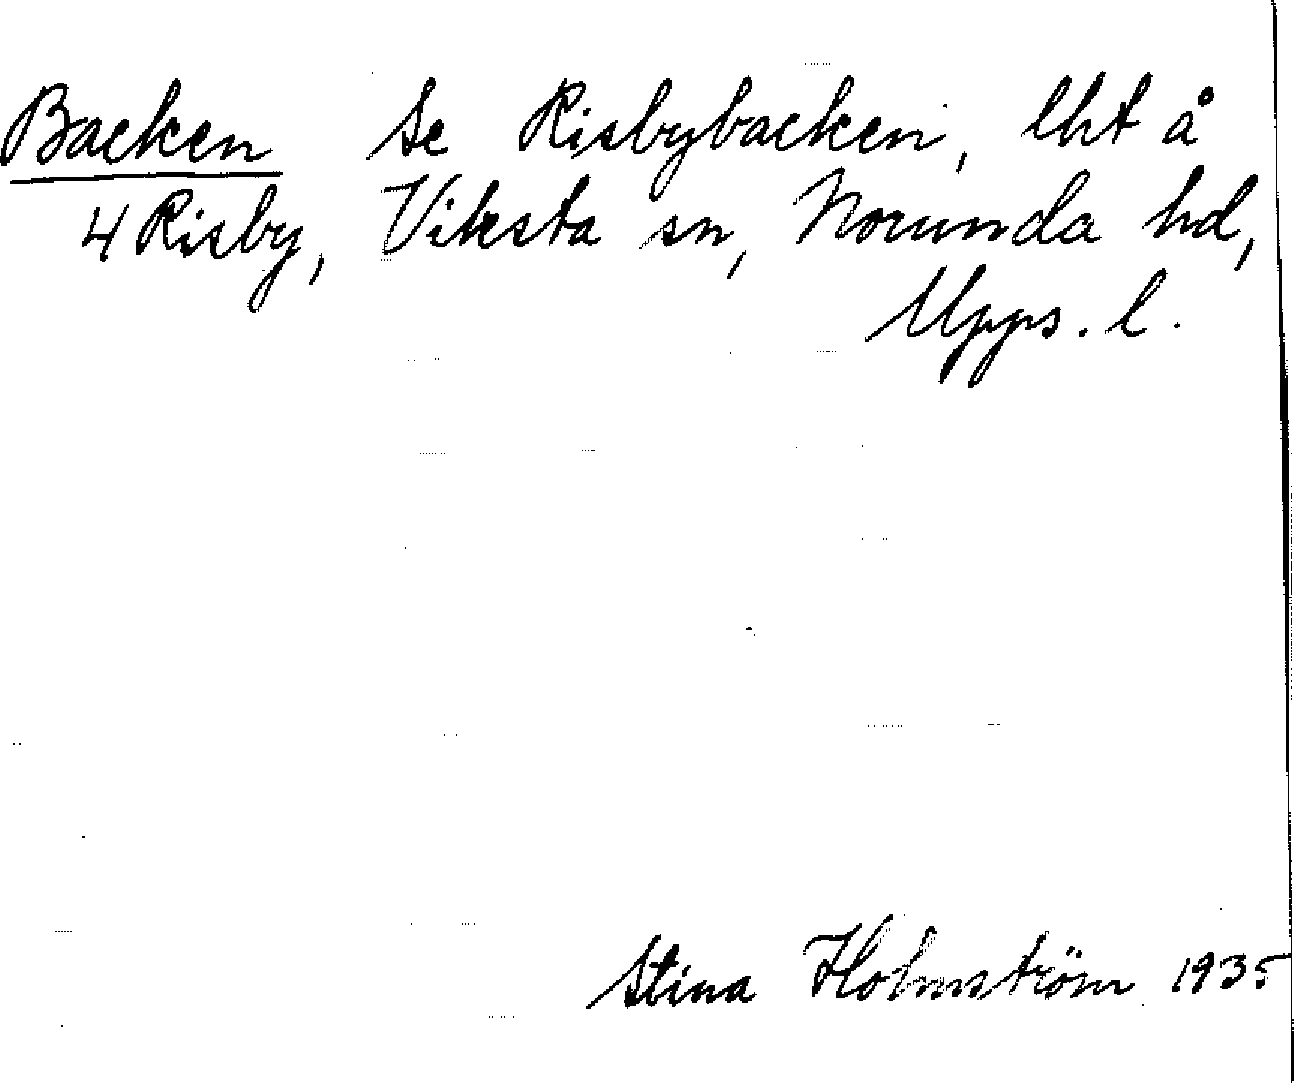 Backen Se Risbybacken, lht å
4 Risby, Viksta sn, Norunda hd,
Upps. l.
Stina Holmström 1935